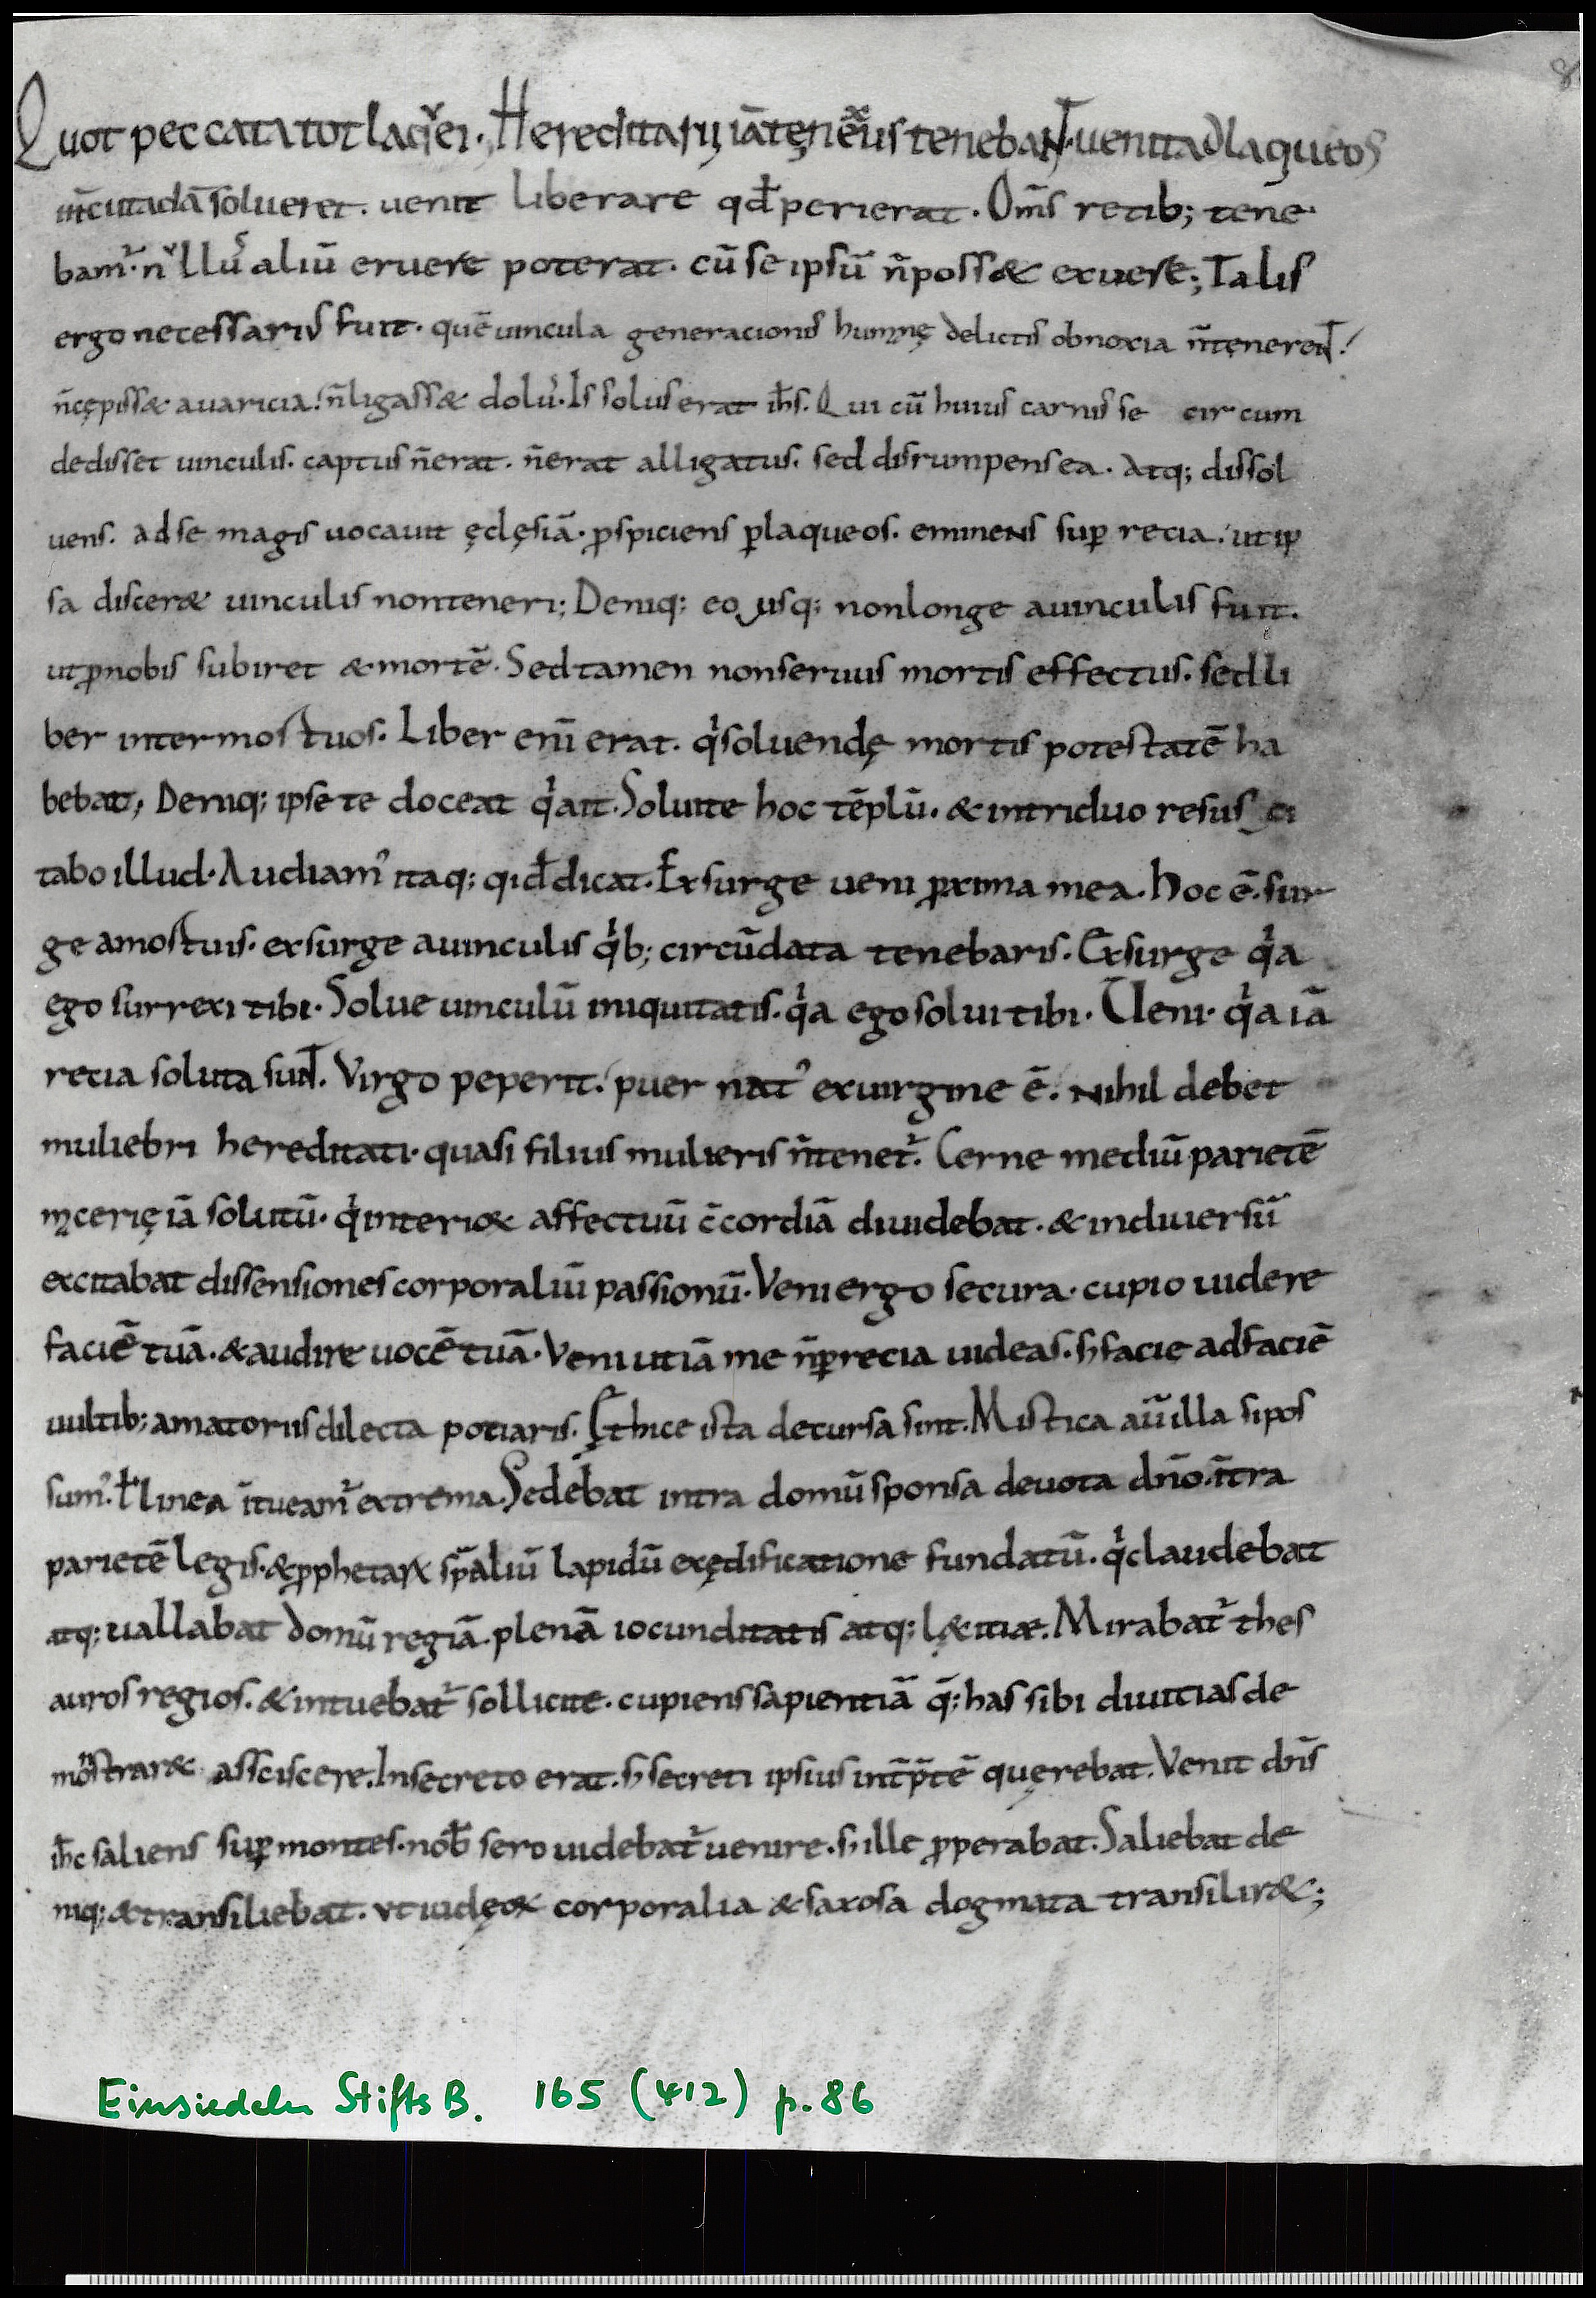 Quot peccata tot laq̾ei. Hereditarii iā tenebant. uenit ad laqueos
solueret. uenit liberare qd̄ perierat. Om̄s retib; tene
bam̄. nullus aliū eruere poterat. cū se ipsū n̄ poss& exuere; Talis
ergo necessarius fuit. quē uincula generacionis humanę delictis obnoxia n̄ tenerent!
n̄ cępiss& auaricia. n̄ ligass& dolus. Is solus erat ih̄s. Qui cū huius carnis se circum
dedisset uinculis. captus n̄ erat. n̄ erat alligatus. sed disrumpens ea. Atq; dissol
uens. ad se magis uocauit ęclęsiā. ꝓspiciens ꝑ laqueos. eminens suꝑ recia. ut ip
sa discer& uinculis non teneri; Deniq; eo usq; non longe a uinculis fuit.
ut ꝓ nobis subiret & mortē. Sed tamen non seruus mortis effectus. sed li
ber inter mortuos. Liber eni erat. qͥ soluendę mortis potestatē ha
bebat; Deniq; ipse te doceat qͥ ait. Soluite hoc tēplū. & in triduo resusci
tabo illud. Audiam᾽ itaq; qid̄ dicat. Exsurge ueni ꝓxima mea. hoc ē. sur
ge a mortuis. exsurge a uinculis qͥb; circūdata tenebaris. Exsurge qͥa
ego surrexi tibi. Solue uinculū iniquitatis. qͥa ego solui tibi. Ueni. qͥa iā
recia soluta sunt. Virgo peperit. puer nat᾽ ex uirgine ē. Nihil debet
muliebri hereditati. quasi filius mulieris n̄ tenet᷑. Cerne mediū parietē
macerię iā solutū. qͥ interior& affectuū c̄cordiā diuidebat. & in diuersū
excitabat dissensiones corporaliū passionū. Veni ergo secura. cupio uidere
faciē tuā. & audire uocē tuā. Veni ut iā me n̄ ꝑ recia uideas. ꞩ facie ad faciē
uultib; amatoriis dilecta potiaris. Ęthice ista decursa sint. Mistica aū illa si pos
sum᾽. ł linea ītueam᷑ extrema. Sedebat intra domū sponsa deuota dn̄o. ītra
parietē legis. & ꝓphetaꝝ sp̄aliū lapidū exędificatione fundatū. qͥ claudebat
atq; uallabat domū regiā. plenā iocunditatis atq; lę&itiæ. Mirabat᷑ thes
auros regios. & intuebat᷑ sollicite. cupiens sapientiā q̄; has sibi diuitias de
monstrar& assciscere. In secreto erat. ꞩ secreti ipsius int̄p̄tē quęrebat. Venit dn̄s
ih̄c saliens suꝑ montes. nob̄ sero uidebat᷑ uenire. ꞩ ille ꝓperabat. Saliebat de
niq; & transiliebat. corporalia & saxosa dogmata transilir&;
Einsiedeln Stifts B. 165 (412) p. 86